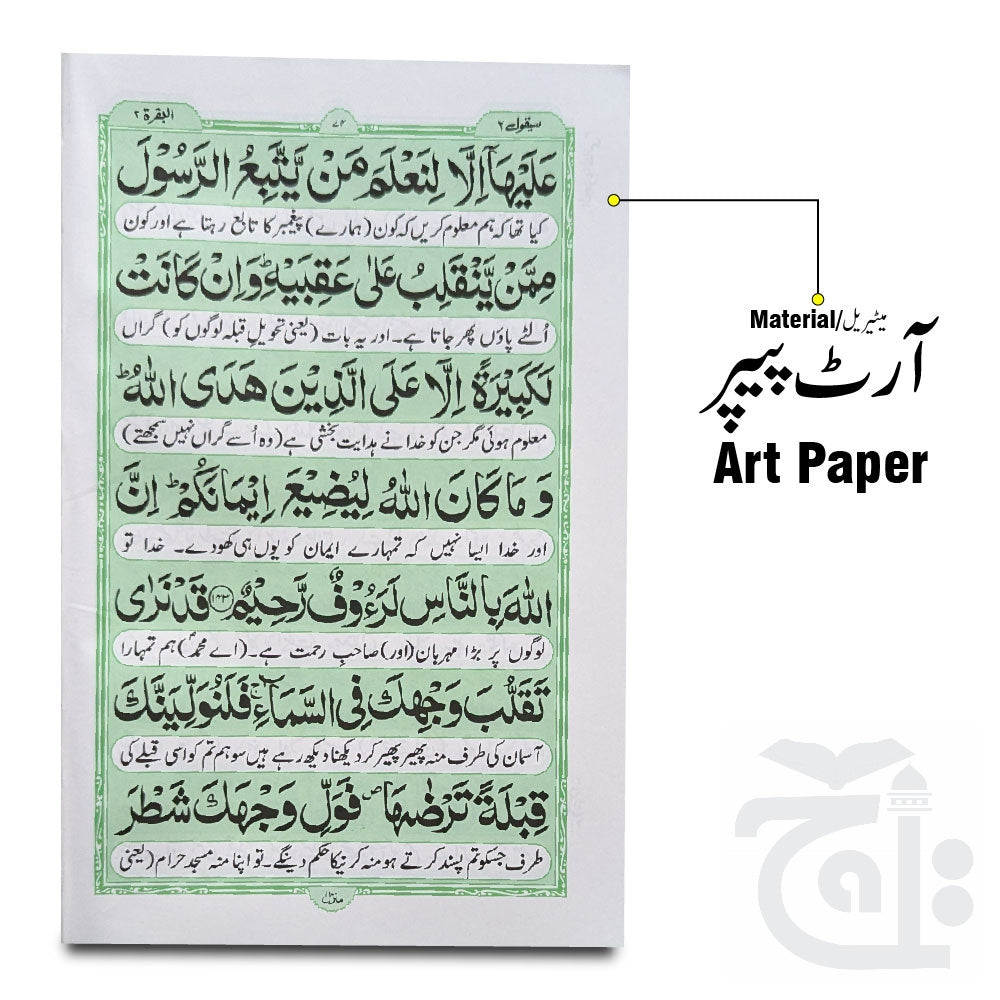 سیقول ٢
٧٤
البقرة ٢
عَلَيْهَآ اِلَّا لِنَعْلَمَ مَنْ يَّتَّبِعُ الرَّسُوْلَ
کیا تھا کہ ہم معلوم کریں کہ کون (ہمارے) پیغمبر کا تابع رہتا ہے اور کون
مِمَّنْ يَّنْقَلِبُ عَلٰى عَقِبَيْهِ ؕ وَاِنْ كَانَتْ
اُلٹے پاؤں پھر جاتا ہے۔ اور یہ بات (یعنی تحویل قبلہ لوگوں کو) گراں
لَكَبِيْرَةً اِلَّا عَلَى الَّذِيْنَ هَدَى اللّٰهُ ؕ
معلوم ہوئی مگر جن کو خدا نے ہدایت بخشی ہے (وہ اُسے گراں نہیں سمجھتے)
وَمَا كَانَ اللّٰهُ لِيُضِيْعَ اِيْمَانَكُمْ ؕ اِنَّ
اور خدا ایسا نہیں کہ تمہارے ایمان کو یوں ہی کھودے۔ خدا تو
اللّٰهَ بِالنَّاسِ لَرَءُوْفٌ رَّحِيْمٌ ﴿١٤٣﴾ قَدْ نَرٰى
لوگوں پر بڑا مہربان (اور) صاحبِ رحمت ہے۔ (اے محمدؐ) ہم تمہارا
تَقَلُّبَ وَجْهِكَ فِى السَّمَآءِ ۚ فَلَنُوَلِّيَنَّكَ
آسمان کی طرف منہ پھیر پھیر کر دیکھنا دیکھ رہے ہیں سو ہم تم کو اسی قبلے کی
قِبْلَةً تَرْضٰىهَا ۪ فَوَلِّ وَجْهَكَ شَطْرَ
طرف جسکو تم پسند کرتے ہو منہ کرنیکا حکم دینگے۔ تو اپنا منہ مسجد حرام (یعنی
منزل ١
Material/میٹیریل
آرٹ پیپر
Art Paper